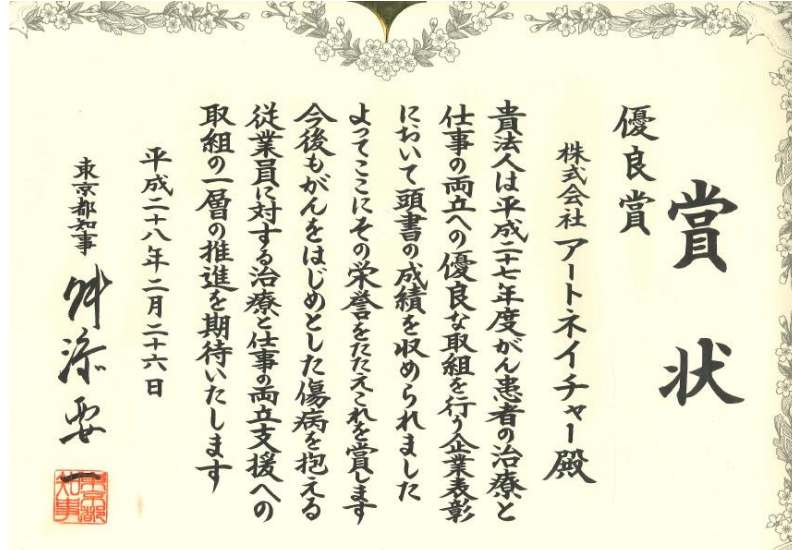 賞状
優良賞
株式会社 アートネイチャー殿
貴法人は平成二十七年度がん患者の治療と
仕事の両立への優良な取組を行う企業表彰
において頭書の成績を収められました
よってここにその栄誉をたたえこれを賞します
今後もがんをはじめとした傷病を抱える
従業員に対する治療と仕事の両立支援への
取組の一層の推進を期待いたします
平成二十八年二月二十六日
東京都知事 舛添要一
東京都知事